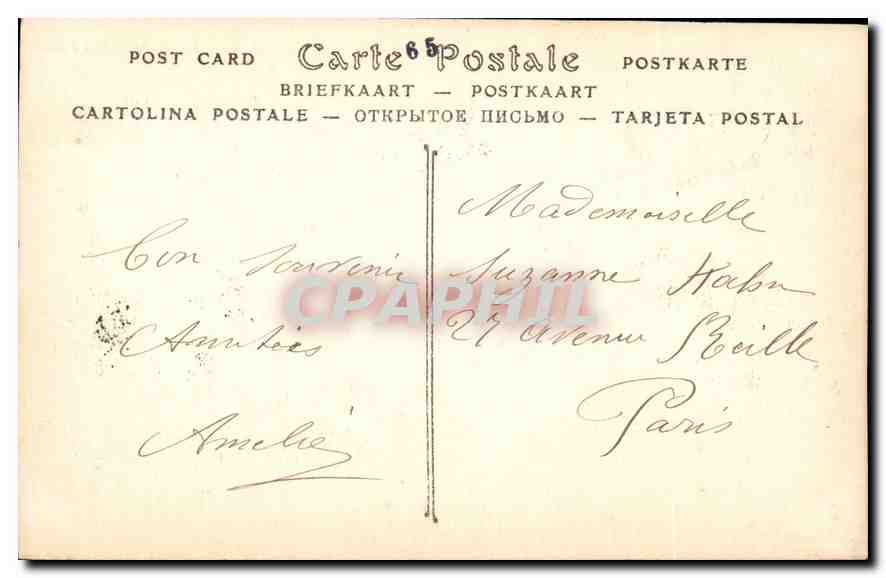 POST CARD Carte Postale POSTKARTE
65
BRIEFKAART — POSTKAART
CARTOLINA POSTALE — ОТКРЫТОЕ ПИСЬМО — TARJETA POSTAL
Bon Souvenir
Amitiées
Amelie
Mademoiselle
Suzanne Kahn
27 avenue Reille
Paris
CPAPHIL